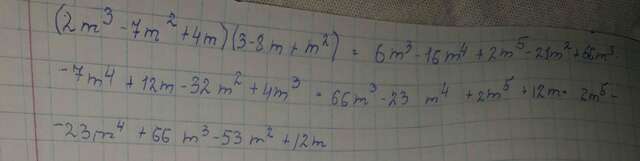 (2m³ -7m² +4m)(3-8m+m²) = 6m³-16m⁴+2m⁵-21m²+56m³-
-7m⁴ + 12m -32m² +4m³ = 66m³ -23 m⁴ +2m⁵ +12m = 2m⁵ -
-23m⁴ + 66 m³ -53m² +12m